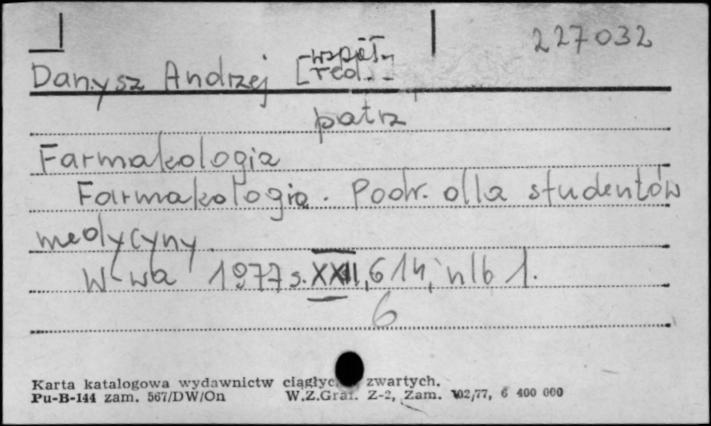 227032
Danysz Andrzej [współ.
red..]
patrz
Farmakologia
Farmakologia. Podr. dla studentów
medycyny.
W-wa 1977 s. XXII, 614, nlb 1.
6
Karta katalogowa wydawnictw ciągłyc zwartych.
Pu-B-144 zam. 567/DW/On W.Z.Graf. Z-2, Zam. 102/77, 6 400 000